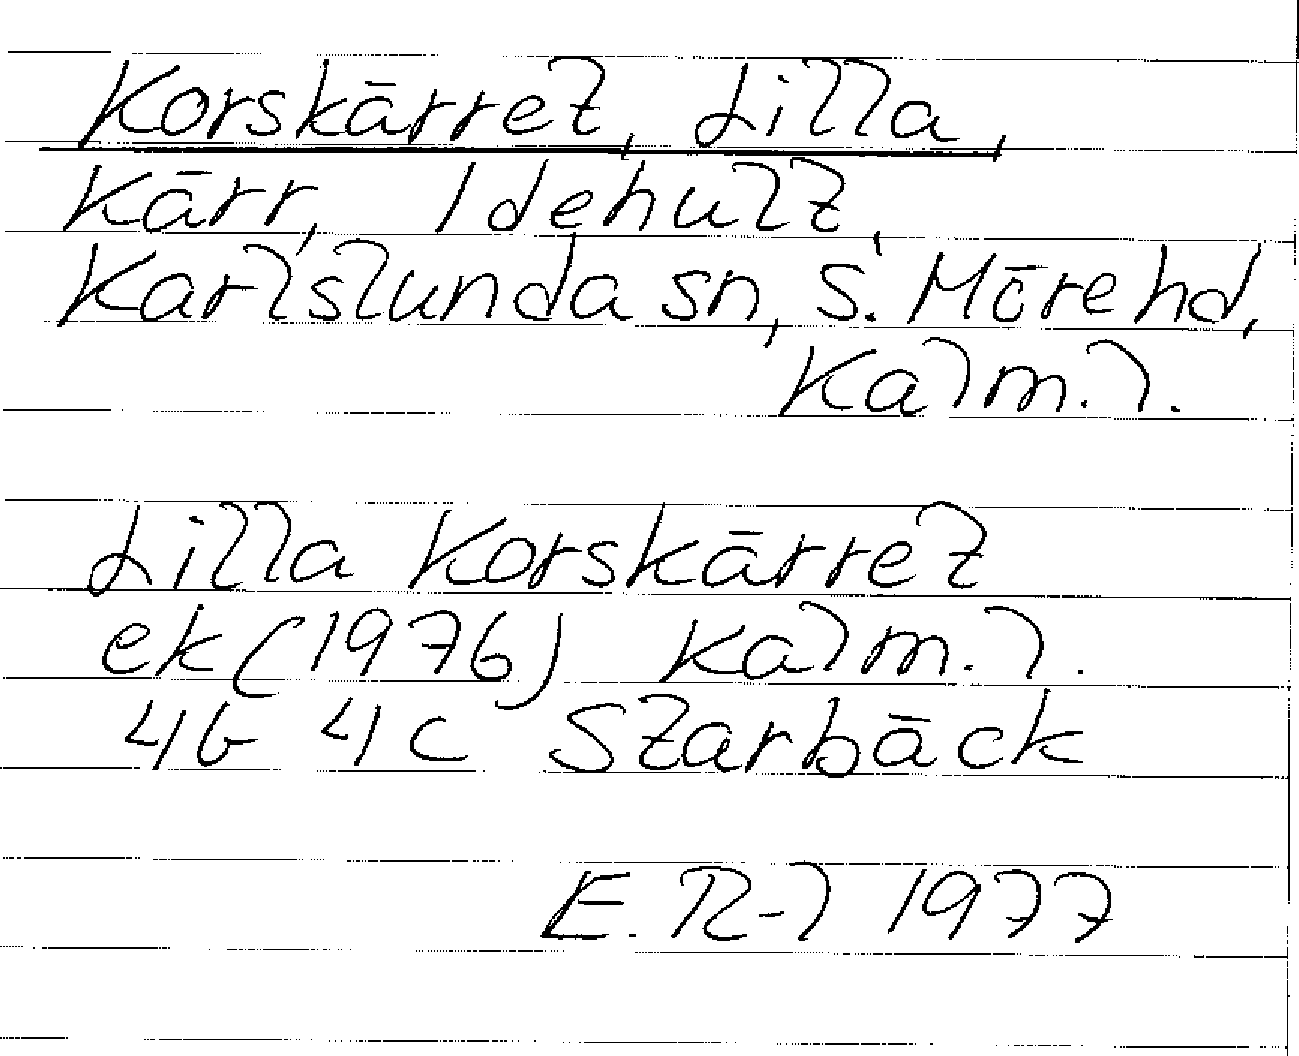 Korskärret, Lilla,
Kärr, Idehult,
Karlslunda sn, S. Möre hd,
Kalm. l.
Lilla Korskärret
ek (1976) Kalm. l.
4G 4c Starbäck
E. R-l 1977